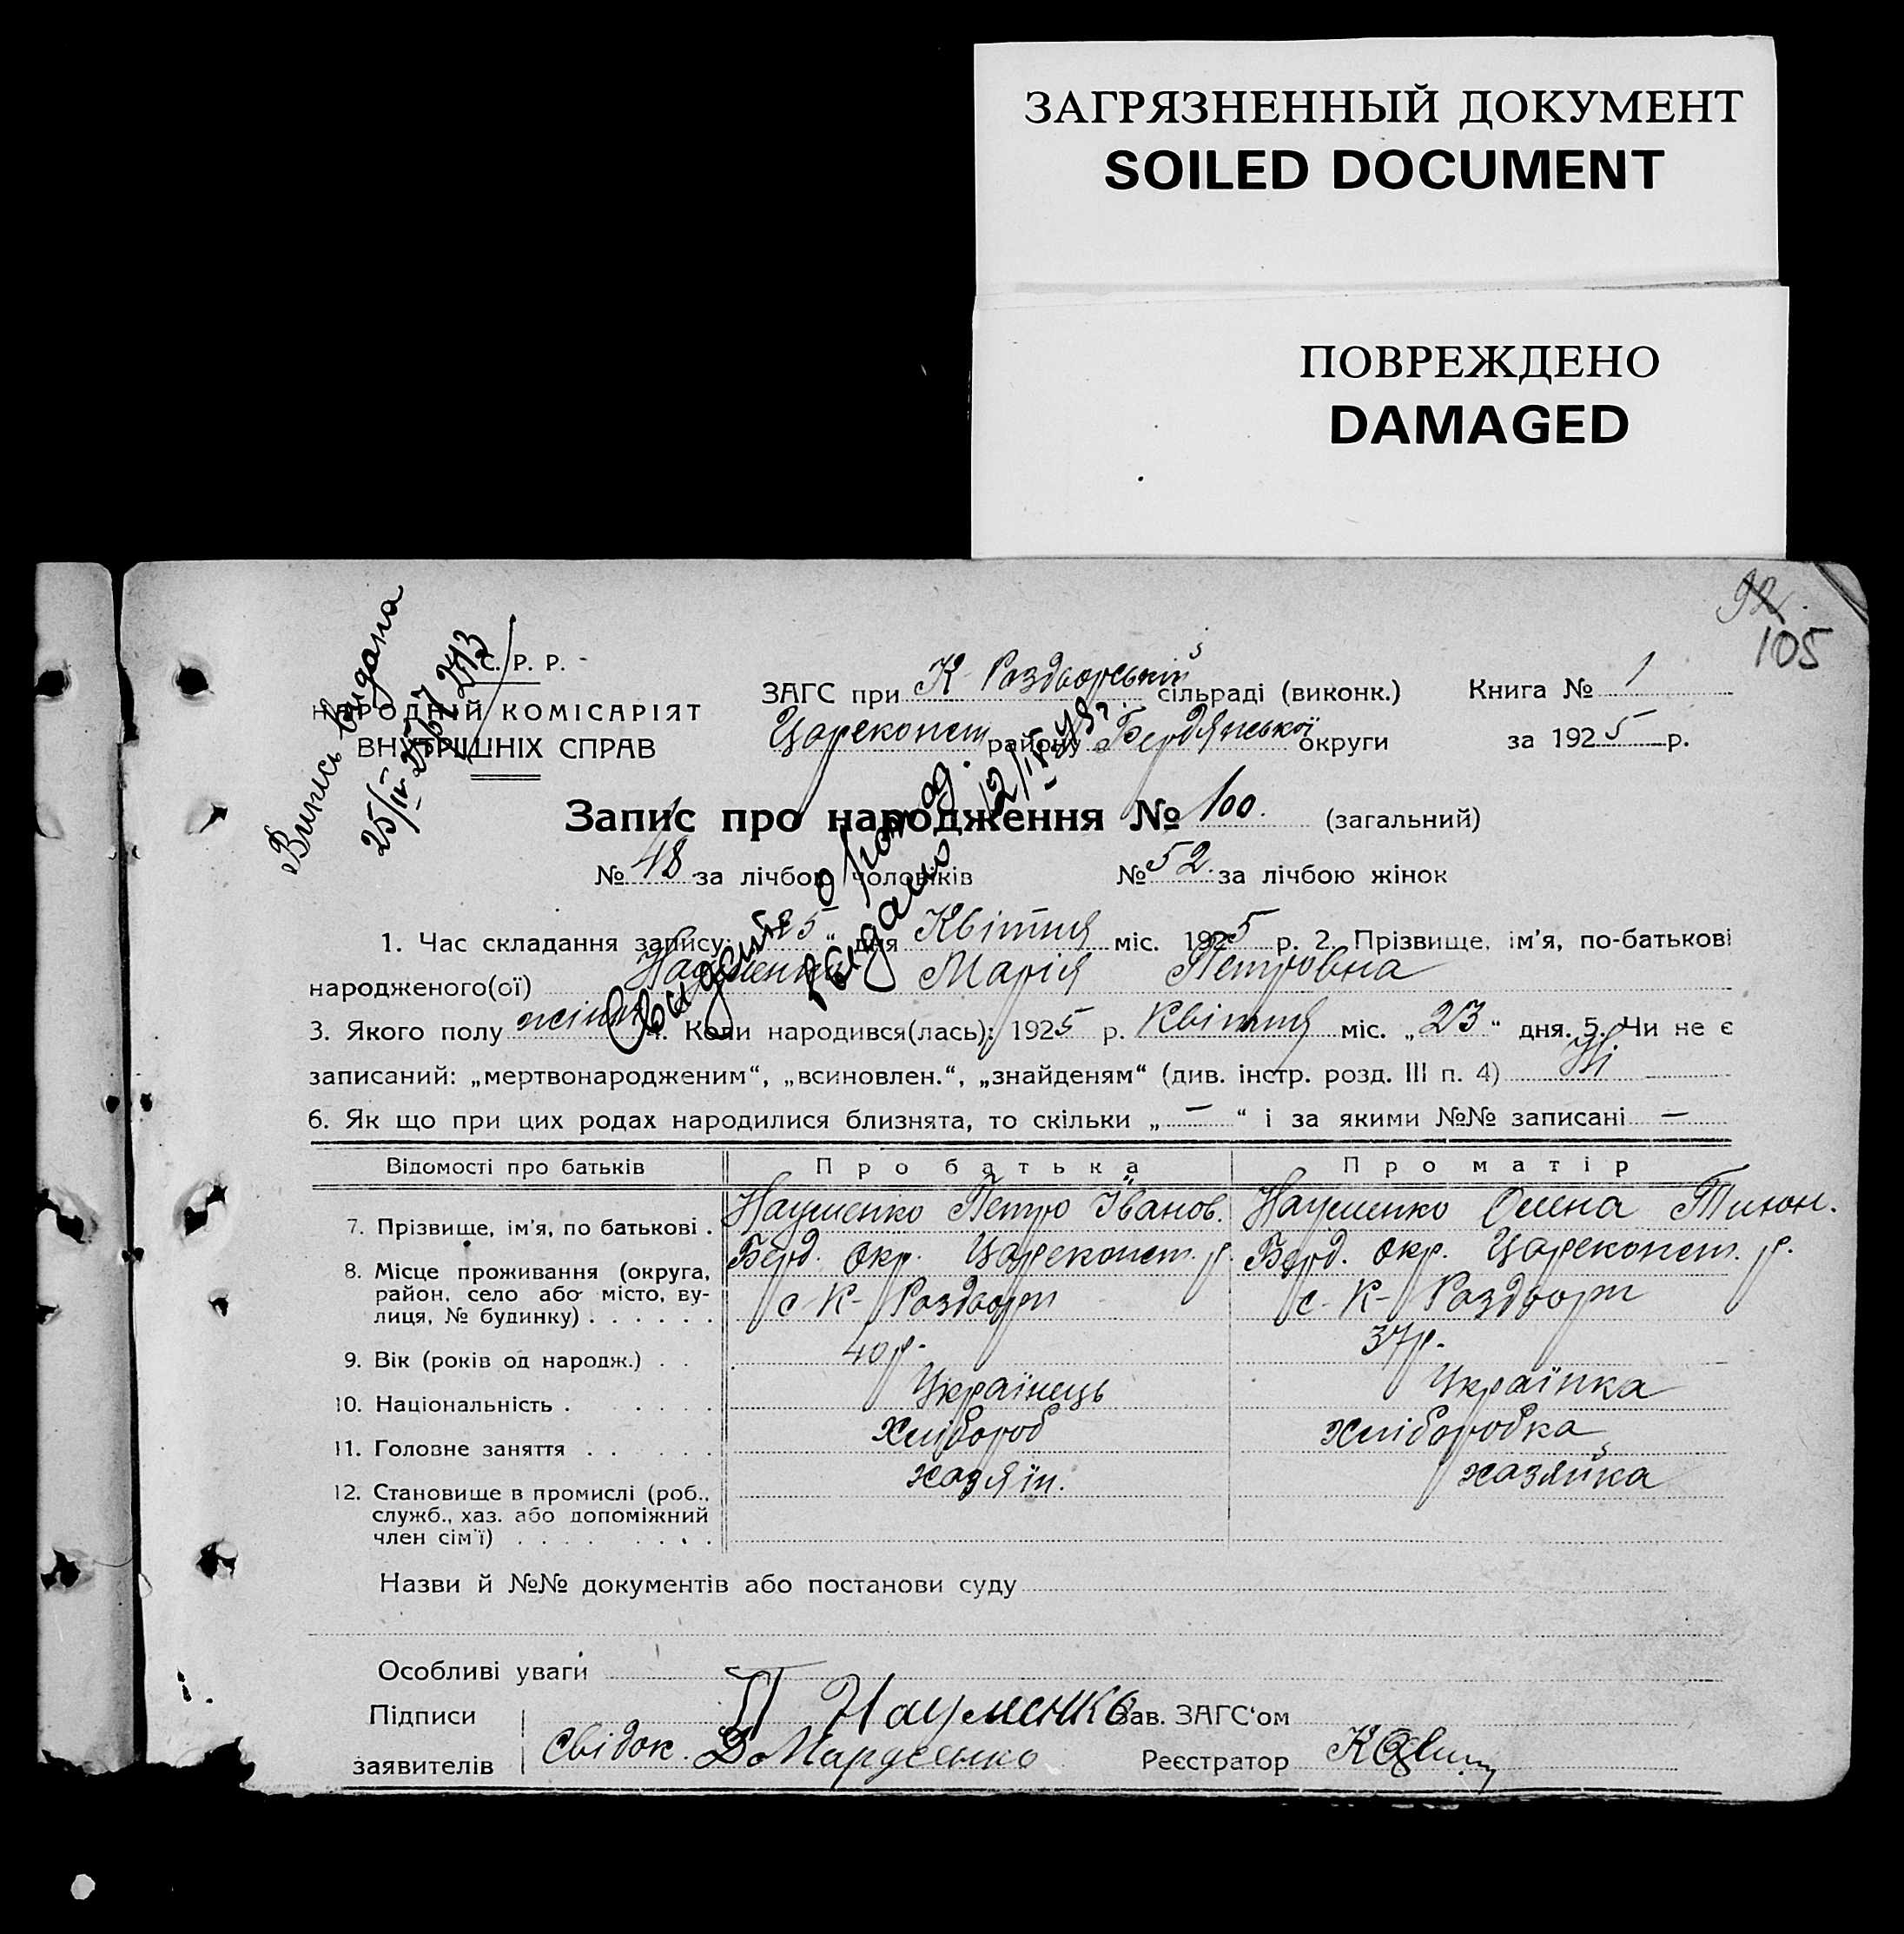 ЗАГРЯЗНЕННЫЙ ДОКУМЕНТ
SOILED DOCUMENT
ПОВРЕЖДЕНО
DAMAGED
92.
105
Випись видана
25/IV
С. Р. Р.
НАРОДНІЙ КОМІСАРІЯТ
ВНУТРІШНІХ СПРАВ
ЗАГС при К-Роздорський сільраді (виконк.) Книга № 1
Цареконст району Бердянської округи за 1925 р.
Запис про народження № 100. (загальний)
№ 48 за лічбою чоловіків № 52. за лічбою жінок
1. Час складання запису: 25 “ дня Квітня міс. 1925 р. 2. Прізвище, ім’я, по-батькові
народженого(ої) Науменко Марія Петровна
3. Якого полу жіноч 4. Коли народився(лась): 1925 р. Квітня міс. „23“ дня. 5. Чи не є
записаний: „мертвонародженим“, „всиновлен.“, „знайденям“ (див. інстр. розд. III п. 4) Ні
6. Як що при цих родах народилися близнята, то скільки „ — “ і за якими №№ записані —
Відомості про батьків Про батька Про матір
7. Прізвище, ім’я, по батькові . Науменко Петро Іванов. Науменко Олена Тихон.
8. Місце проживання (округа, Берд. окр. Цареконст. р. Берд. окр. Цареконст. р.
район, село або місто, ву- с-К-Роздори с-К-Роздори
лиця, № будинку) . . . . . .
9. Вік (років од народж.) . . 40 р. 37 р.
10. Національність . . . . . Українець Українка
11. Головне заняття . . . . . Хлібороб хліборобка
12. Становище в промислі (роб., хазяїн. хазяйка
служб., хаз. або допоміжний
член сім’ї) . . . . . . . .
Назви й №№ документів або постанови суду
Особливі уваги
Підписи П Науменко Зав. ЗАГС‘ом
заявителів Свідок. Реєстратор